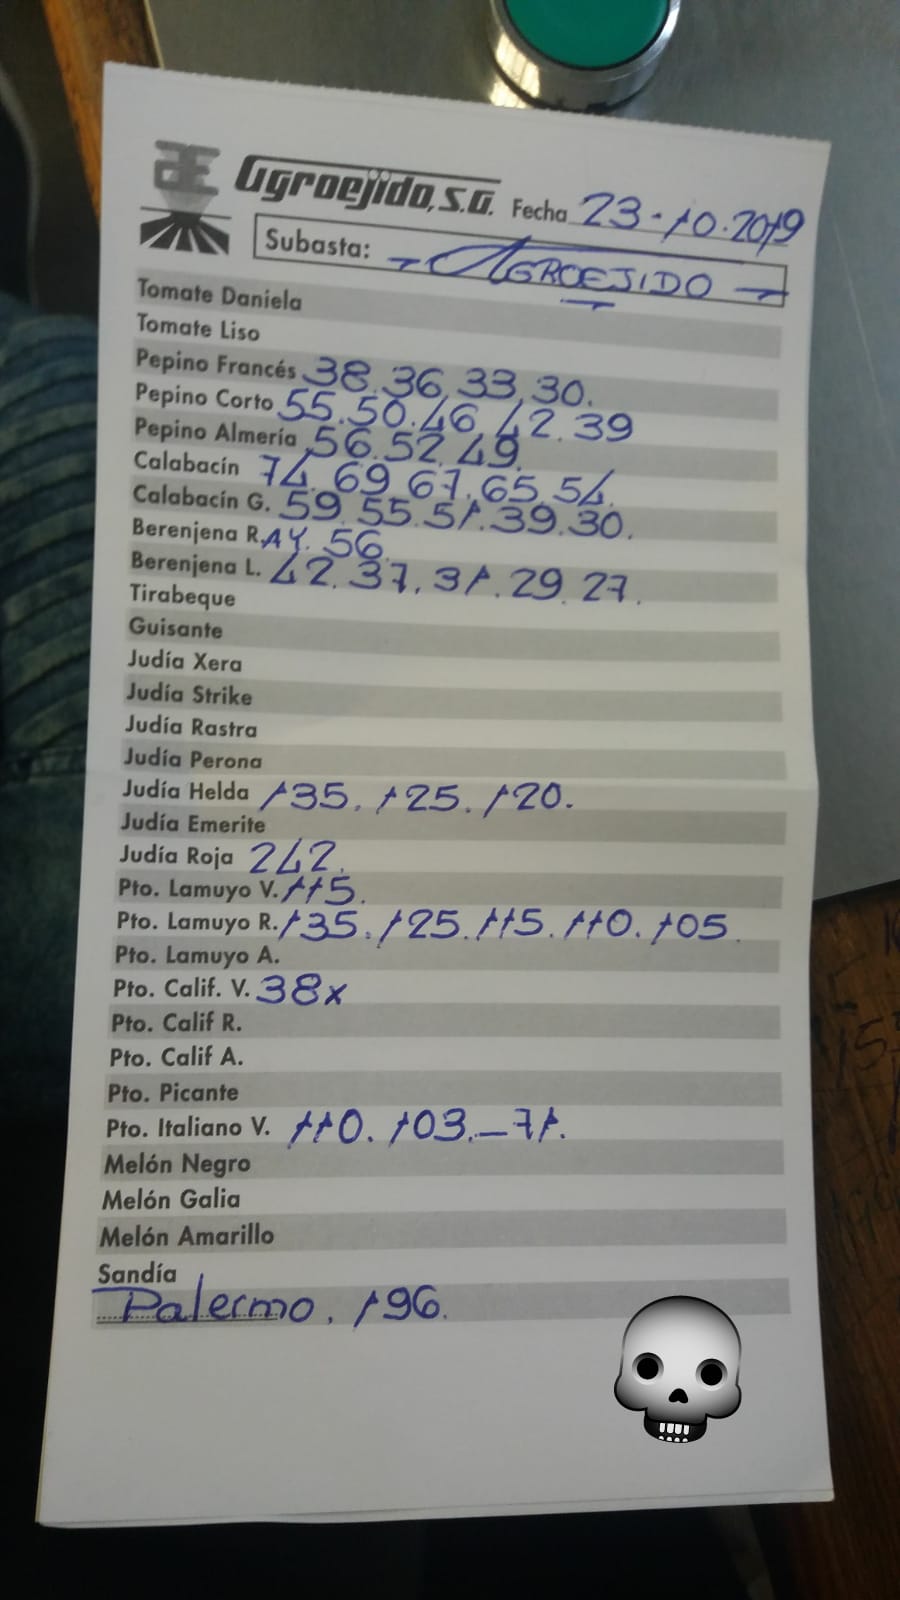 Agroejido, S.A. Fecha 23-10-2019
Subasta: - AGROEJIDO -
Tomate Daniela
Tomate Liso
Pepino Francés 38.36.33.30.
Pepino Corto 55.50.46.42.39
Pepino Almería 56.52.49.
Calabacín 74.69.67.65.54.
Calabacín G. 59.55.51.39.30.
Berenjena R.AY. 56.
Berenjena L. 42.37.31.29.27.
Tirabeque
Guisante
Judía Xera
Judía Strike
Judía Rastra
Judía Perona
Judía Helda 135.125.120.
Judía Emerite
Judía Roja 242.
Pto. Lamuyo V. 115.
Pto. Lamuyo R. 135.125.115.110.105.
Pto. Lamuyo A.
Pto. Calif. V. 38x
Pto. Calif R.
Pto. Calif A.
Pto. Picante
Pto. Italiano V. 110.103.-71.
Melón Negro
Melón Galia
Melón Amarillo
Sandía
Palermo. 196.